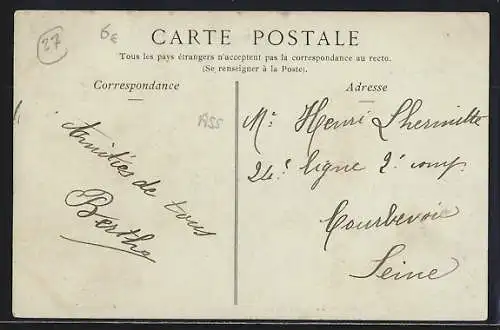 27
6€
CARTE POSTALE
Tous les pays étrangers n'acceptent pas la correspondance au recto.
(Se renseigner à la Poste).
Correspondance
Adresse
ASS
Amitiés de tous
Berthe
Mr Henri Lhermitte
24e ligne 2e comp.
Courbevoie
Seine